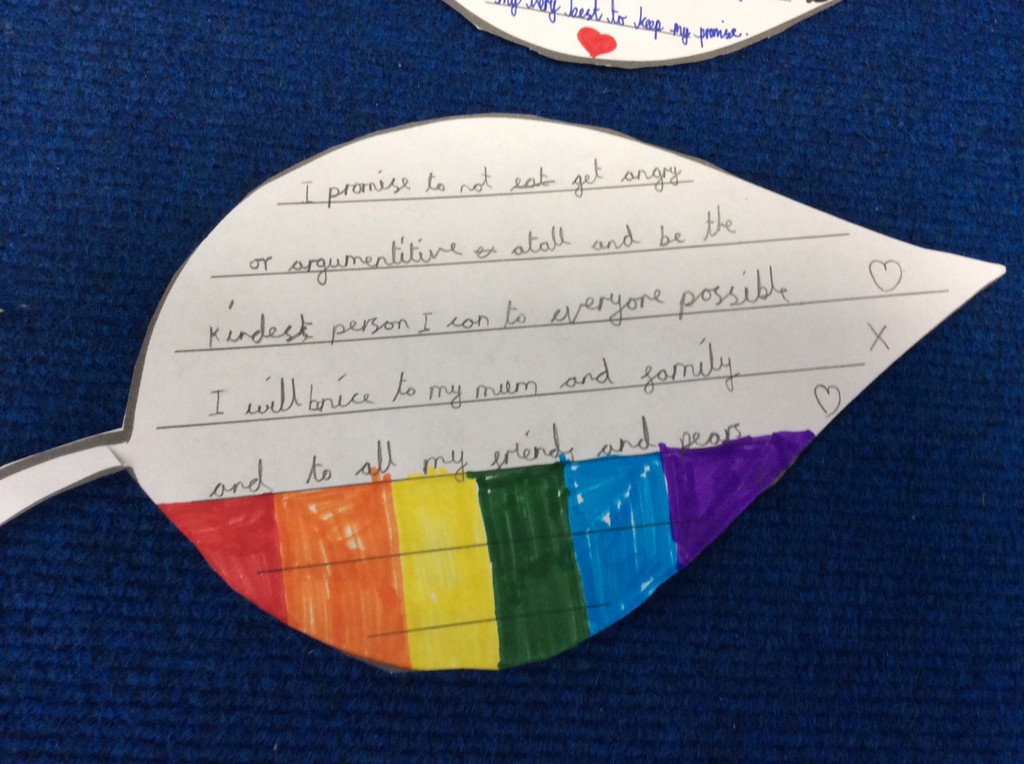 my very best to keep my promise.
I promise to not eat get angry
or argumentitive & atall and be the
kindest person I can to everyone possible
I will bnice to my mum and family
and to all my friends and pears